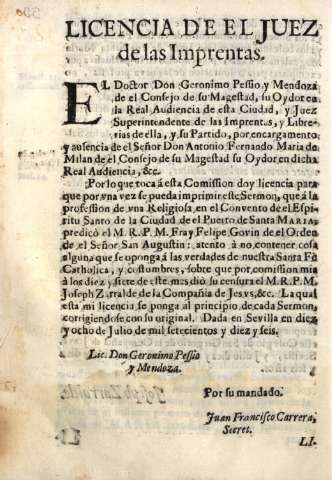 LICENCIA DE EL JUEZ
de las Imprentas.
EL Doctor Don Geronimo Pessio, y Mendoza
de el Consejo de su Magestad, su Oydor en
la Real Audiencia de esta Ciudad, y Juez
Superintendente de las Imprentas, y Libre-
rias de ella, y su Partido, por encargamento
y ausencia de el Señor Don Antonio Fernando Maria de
Milan de el Consejo de su Magestad su Oydor en dicha
Real Audiencia, &c.
Por lo que toca à esta Comission doy licencia para
que por una vez se pueda imprimir este Sermon, que à la
profession de una Religiosa, en el Convento de el Espi-
ritu Santo de la Ciudad de el Puerto de Santa MARIA
predicò el M. R. P. M. Fray Felipe Govin de el Orden
de el Señor San Augustin: atento à no contener cosa
alguna que se oponga à las verdades de nuestra Santa Fè
Catholica, y costumbres, sobre que por comission mia
à los diez y siete de este mes diò su censura el M. R. P. M.
Joseph Zarralde de la Compañia de Jesvs, &c. La qual
esta mi licencia se ponga al principio de cada Sermon,
corrigiendose con su original. Dada en Sevilla en diez
y ocho de Julio de mil setecientos y diez y seis.
Lic. Don Geronimo Pessio
y Mendoza.
Por su mandado.
Juan Francisco Carrera,
Secret.
LI.